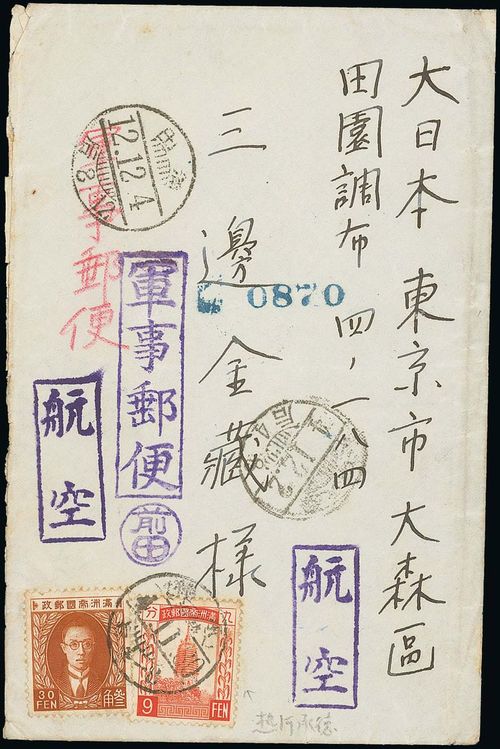 大日本 東京市 大森區
田園調布 四ノ一八四
三邊金藏様
0870
軍事郵便
軍事郵便
前田
航空
航空
12.12.4
滿洲帝國郵政
30 FEN
參角
滿洲帝國郵政
九分
9 FEN
熱河承德